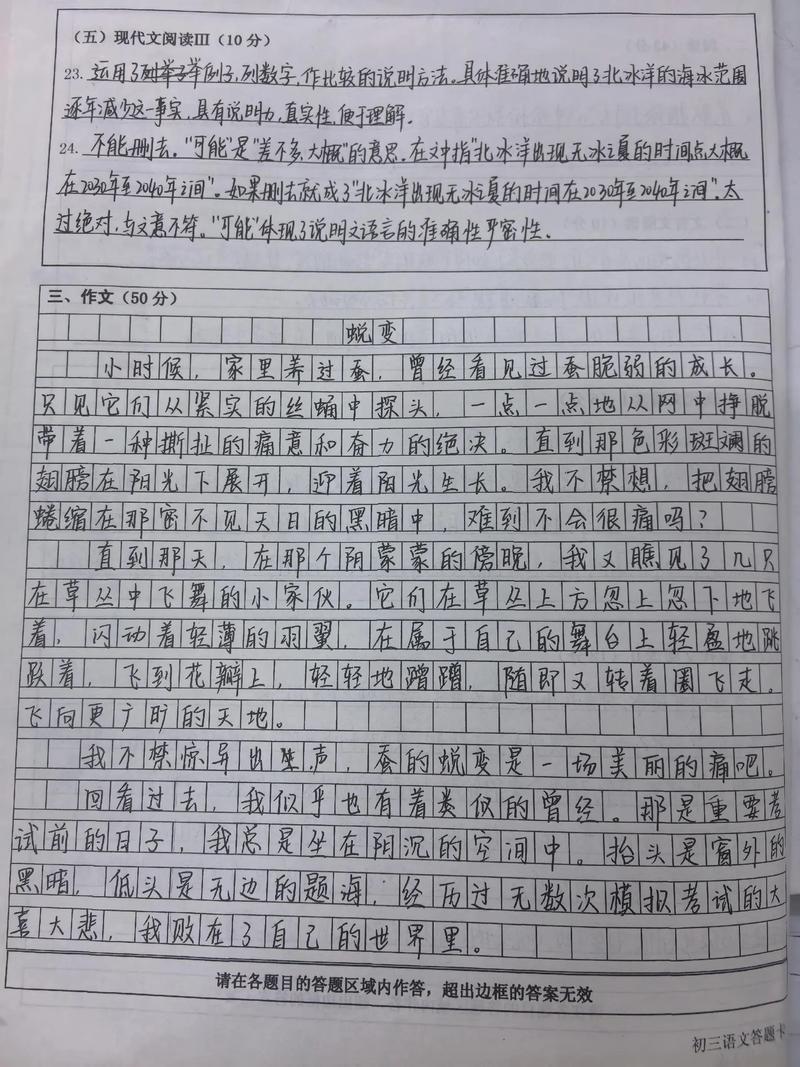 （五）现代文阅读Ⅲ（10分）
23. 运用了列举子举例子，列数字，作比较的说明方法。具体准确地说明了北冰洋的海冰范围
逐年减少这一事实，具有说明力，真实性，便于理解。
24. 不能删去。"可能"是"差不多，大概"的意思。在文中指"北冰洋出现无冰之夏的时间点大概
在2030年至2040年之间"。如果删去就成了"北冰洋出现无冰之夏的时间在2030年至2040年之间"。太
过绝对，与文意不符。"可能"体现了说明文语言的准确性严密性。
三、作文（50分）
蜕变
小时候，家里养过蚕，曾经看见过蚕脆弱的成长。
只见它们从紧实的丝蛹中探头，一点一点地从网中挣脱
带着一种撕扯的痛意和奋力的绝决。直到那色彩斑斓的
翅膀在阳光下展开，迎着阳光生长。我不禁想，把翅膀
蜷缩在那密不见天日的黑暗中，难到不会很痛吗？
直到那天，在那个阴蒙蒙的傍晚，我又瞧见了几只
在草丛中飞舞的小家伙。它们在草丛上方忽上忽下地飞
着，闪动着轻薄的羽翼，在属于自己的舞台上轻盈地跳
跃着，飞到花瓣上，轻轻地蹭蹭，随即又转着圈飞走。
飞向更广旷的天地。
我不禁惊异出声，蚕的蜕变是一场美丽的痛吧。
回看过去，我似乎也有着类似的曾经。那是重要考
试前的日子，我总是坐在阴沉的空间中。抬头是窗外的
黑暗，低头是无边的题海，经历过无数次模拟考试的大
喜大悲，我败在了自己的世界里。
请在各题目的答题区域内作答，超出边框的答案无效
初三语文答题卡